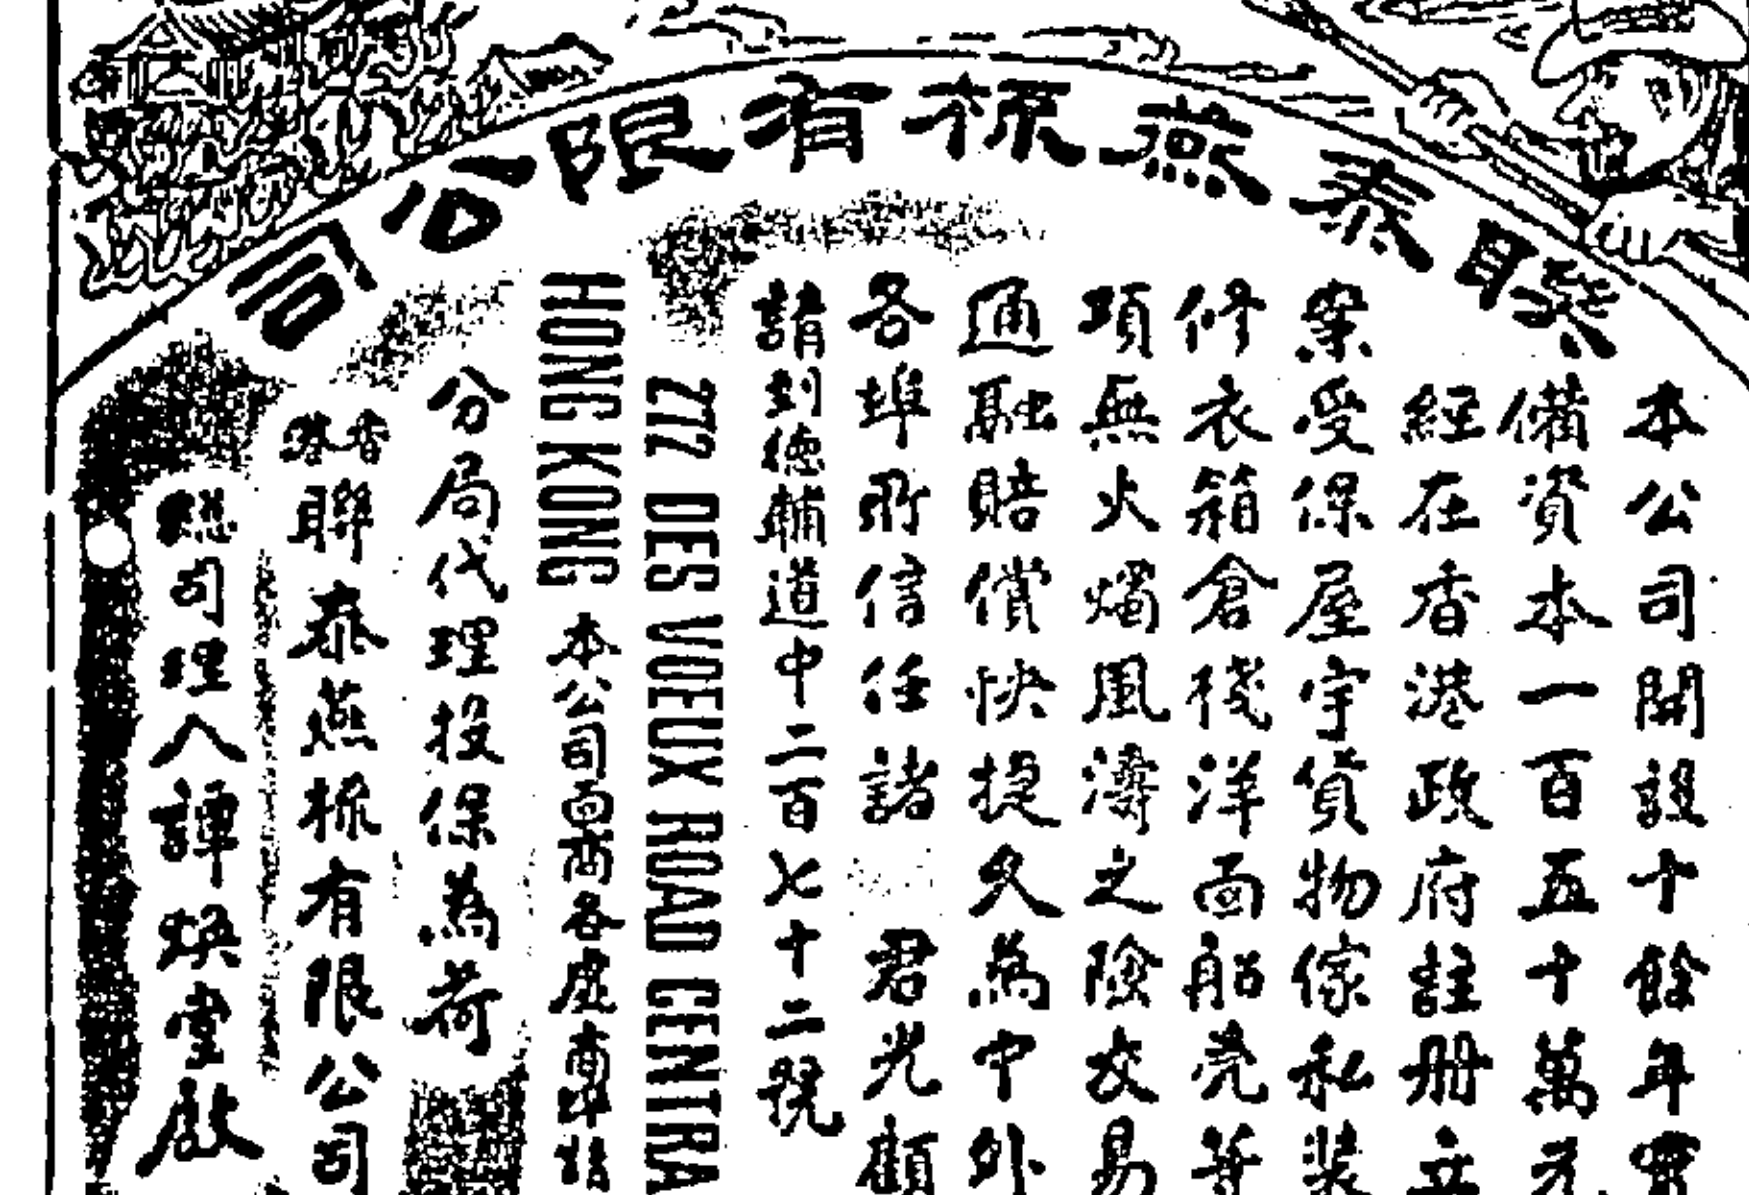 聯泰燕梳有限公司
本公司開設十餘年實
備資本一百五十萬元
經在香港政府註册立
案受保屋宇貨物傢私裝
修衣箱倉棧洋面船壳等
項無火燭風濤之險交易
通融賠償快捷久為中外
各埠所信任諸 君光顧
請到德輔道中二百七十二號
272 DES VOEUX ROAD CENTRA
HONG KONG 本公司各處
分局代理投保為荷
香港聯泰燕梳有限公司
總司理人譚煥堂啟